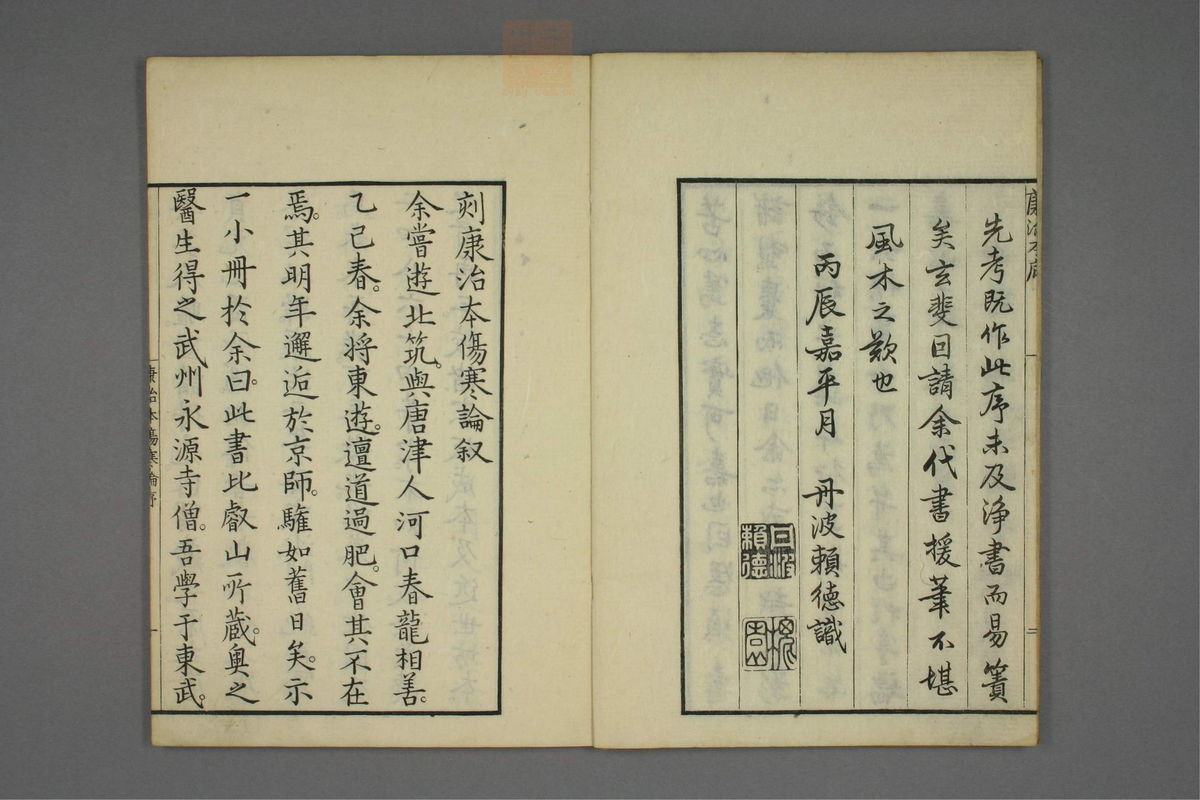 康治本序
先考既作此序未及浄書而易簀
矣玄斐因請余代書援筆不堪
風木之歎也
丙辰嘉平月 丹波頼徳識
丹波
頼徳
二
刻康治本傷寒論叙
余嘗遊北筑。與唐津人河口春龍相善。
乙已春。余將東遊。邅道過肥。會其不在
焉。其明年邂逅於京師。驩如舊日矣。示
一小冊於余曰。此書比叡山所藏。奥之
醫生得之武州永源寺僧。吾學于東武。
康治本傷寒論序
一